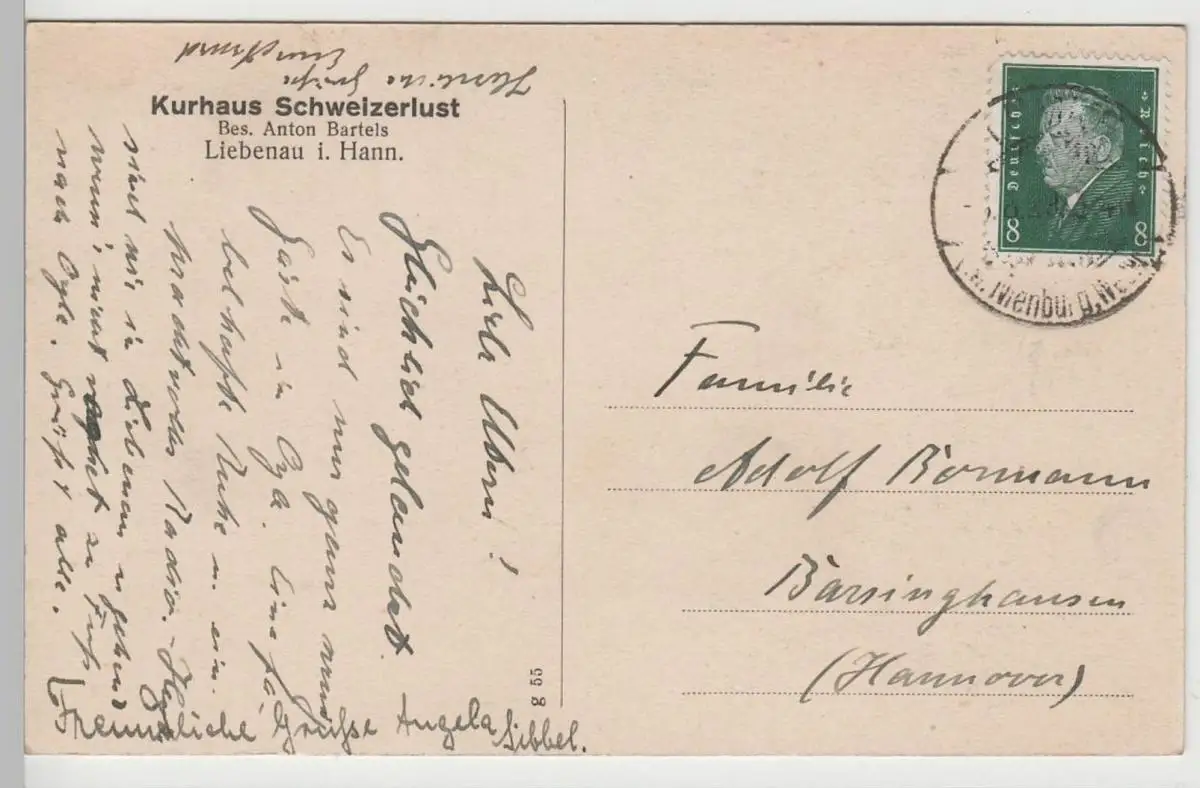 Kurhaus Schweizerlust
Bes. Anton Bartels
Liebenau i. Hann.
Liebe Eltern!
Glücklich gelandet.
Es sind nur ganz wenig
Gäste in Oyle. Eine fa-
belhafte Ruhe u. ein
prachtvolles Radio. - Heute
sind wir in Liebenau u. gehen
wenn's nicht regnet zu Fuß
nach Oyle. Grüßt alle.
Herzliche Grüße
Freundliche Grüsse Angela
Sibbel.
g 55
Deutsches Reich
8 8
Nienburg, Weser
Familie
Adolf Bormann
Barsinghausen
(Hannover)